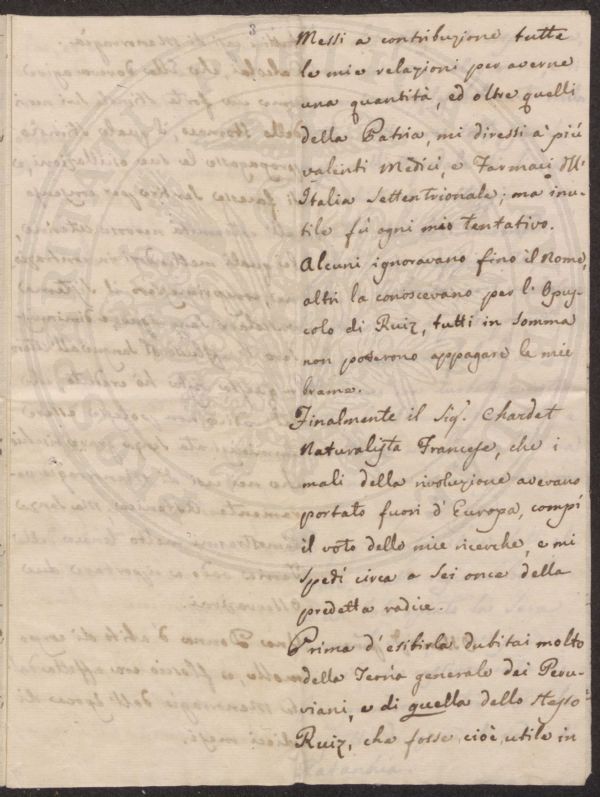 3
Messi a contribuzione tutte
le mie relazioni per averne
una quantità, ed oltre quelli
della Patria, mi diressi a' piú
valenti Medici, e Farmaci dell'
Italia Settentrionale; ma inu-
tile fú ogni mio tentativo.
Alcuni ignoravano fino il Nome,
altri la conoscevano per l'Opus-
colo di Ruiz, tutti in somma
non poterono appagare le mie
brame.
Finalmente il Sig.r Chardet
Naturalista Francese, che i
mali della rivoluzione avevano
portato fuori d'Europa, compí
il voto delle mie ricerche, e mi
spedí circa a sei once della
predetta radice.
Prima d'esibirla dubitai molto
della Teoría generale dei Peru-
viani, e di quella dello stesso
Ruiz, che fosse cioè utile in